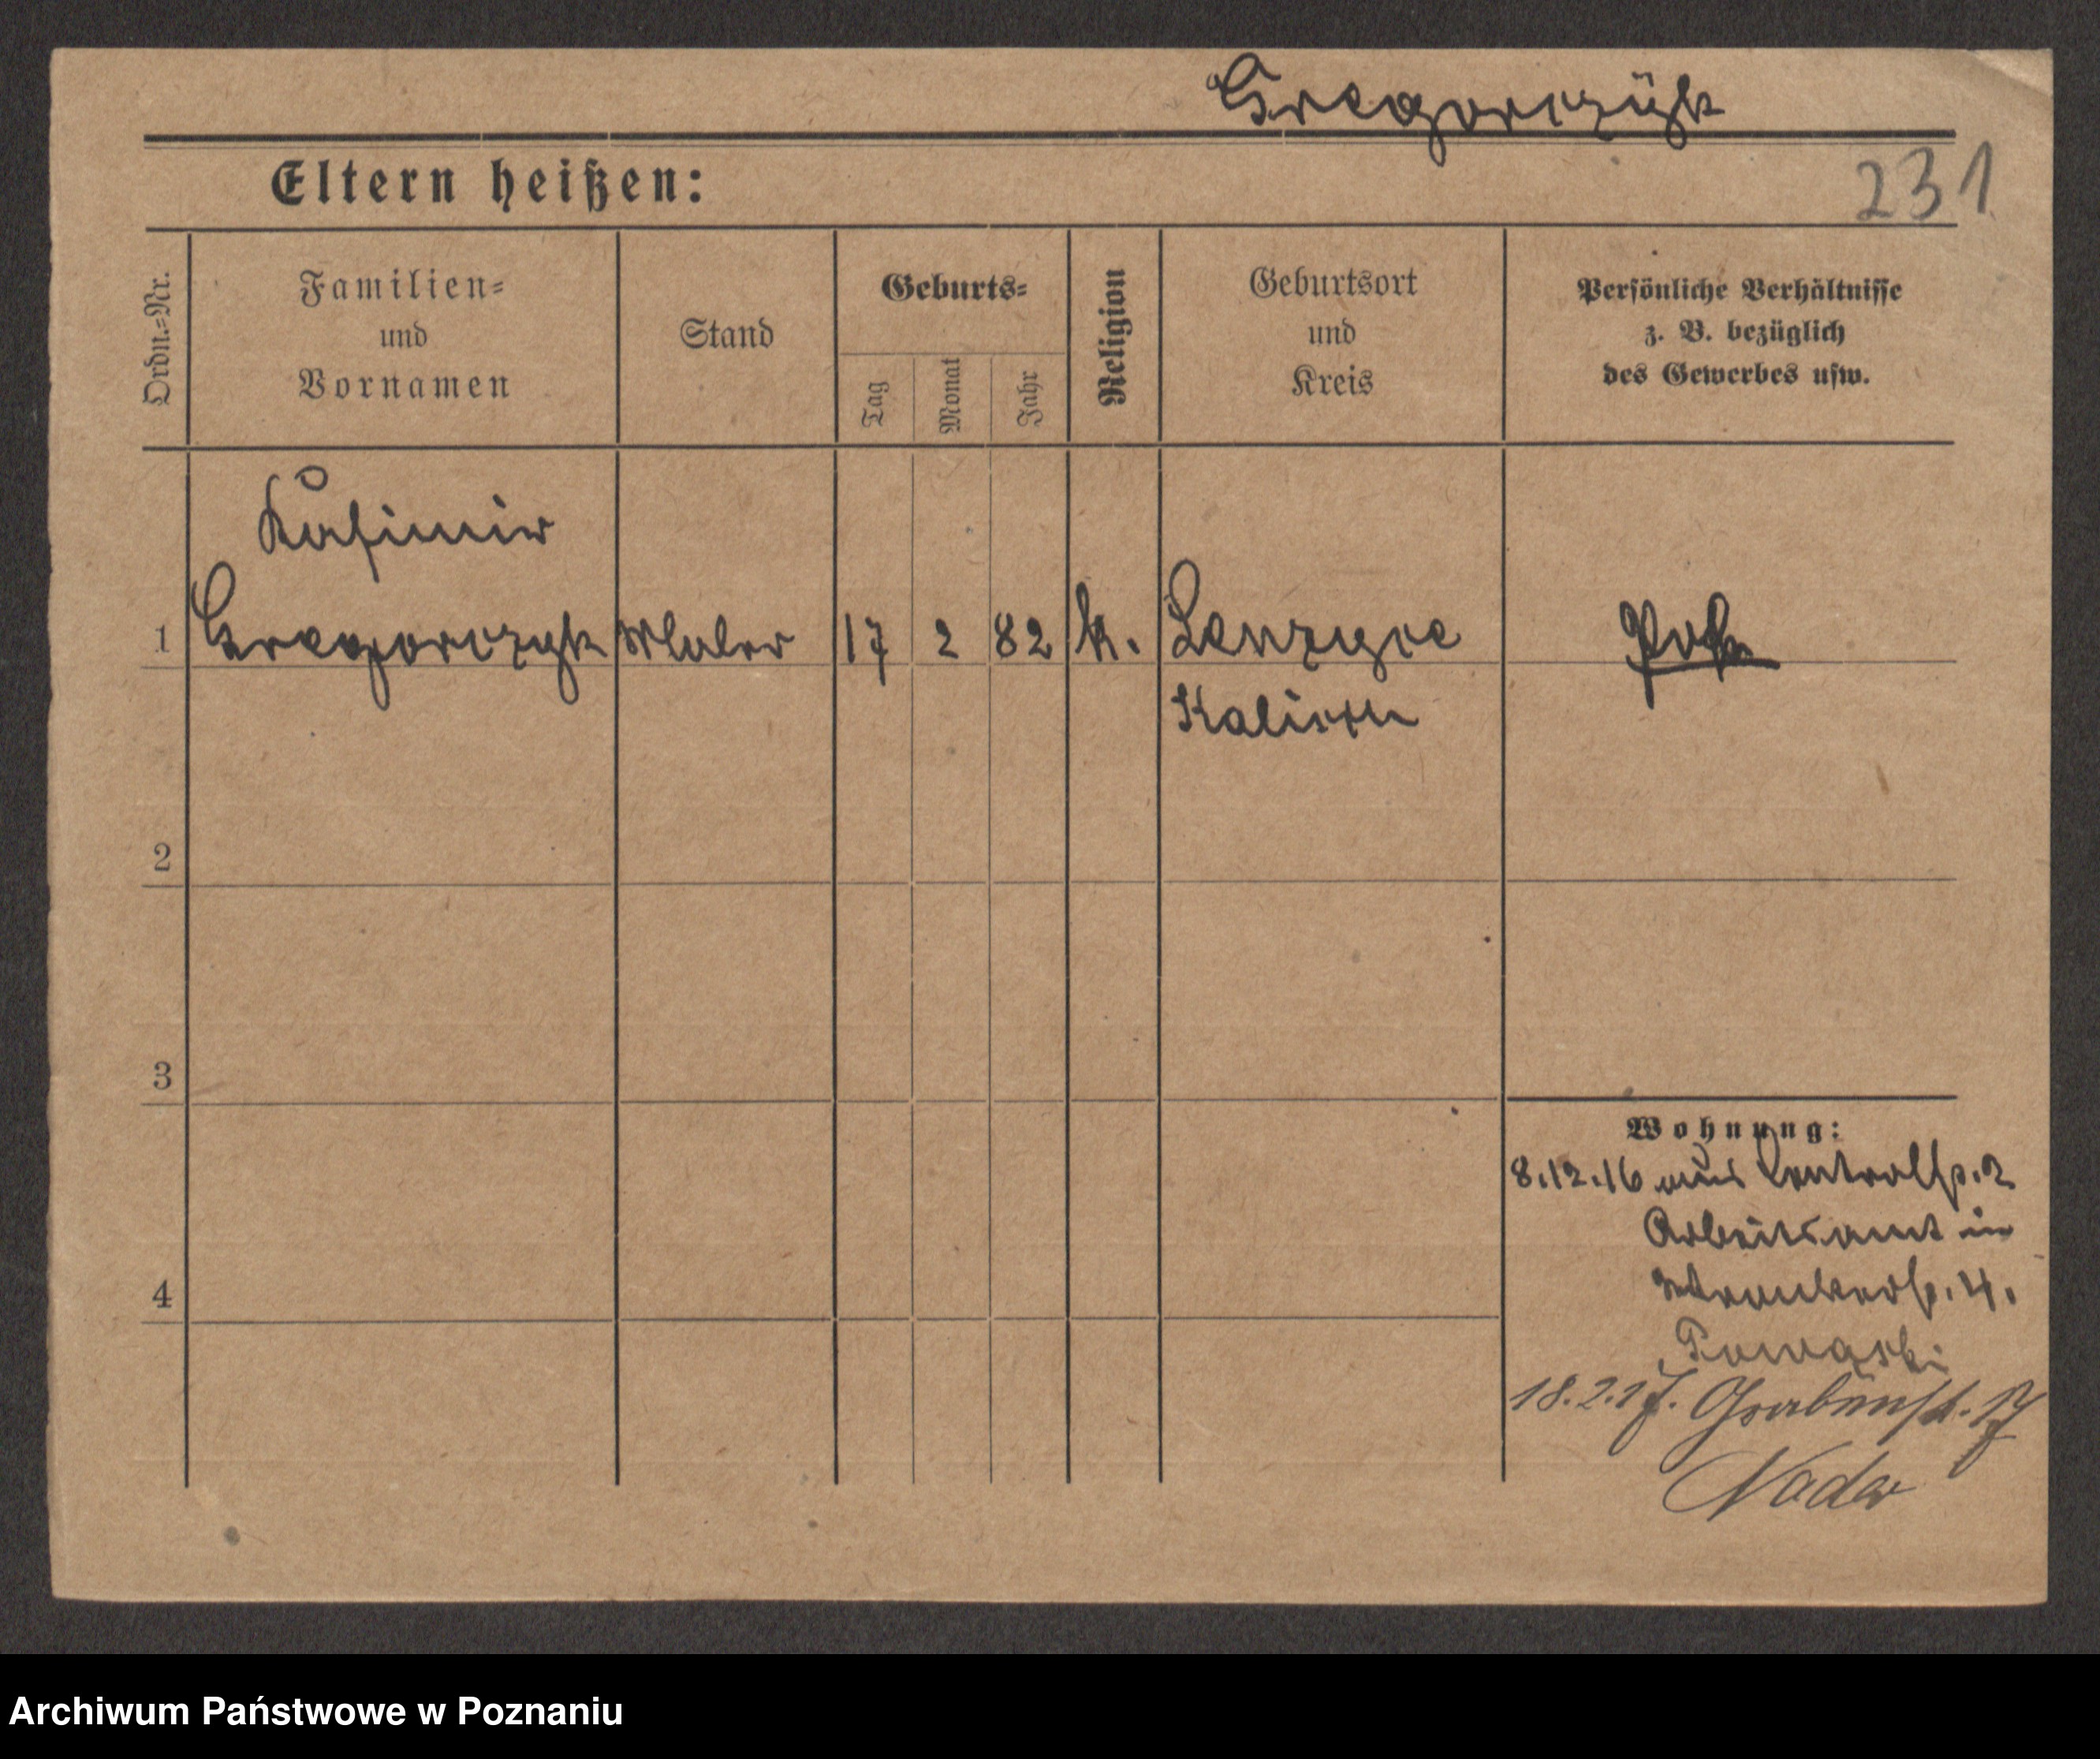 Gregorczÿk
Eltern heißen:
231
Ordn.-Nr.
Familien-
und
Vornamen
Stand
Geburts-
Tag
Monat
Jahr
Religion
Geburtsort
und
Kreis
Persönliche Verhältnisse
z. B. bezüglich
des Gewerbes usw.
Kasimir
1 Gregorczyk Maler 17 2 82 k. Lenzyce Pole
Kalisch
2
3
Wohnung:
8.12.16 aus
Arbeitsamt in
4
18.2.17. Grabenst. 17
Archiwum Państwowe w Poznaniu